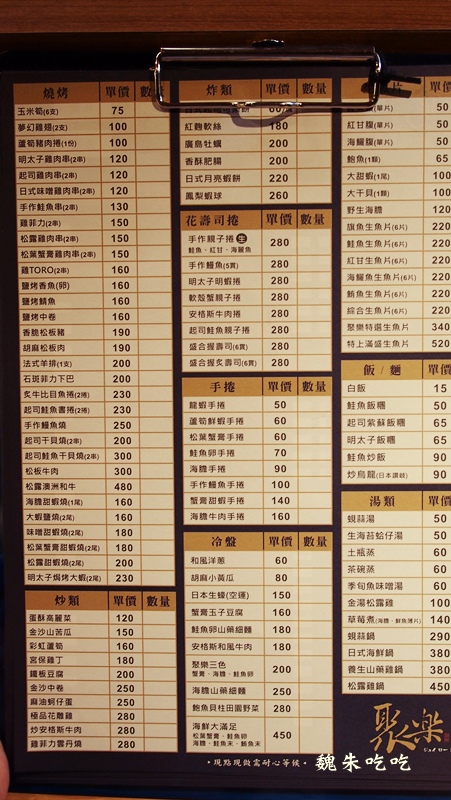 燒烤 單價 數量
玉米筍(6支) 75
夢幻雞翅(2支) 100
蘆筍豬肉捲(1份) 100
明太子雞肉串(2串) 120
起司雞肉串(2串) 120
日式味噌雞肉串(2串) 120
手作鮭魚串(2串) 130
雞菲力(2串) 150
松露雞肉串(2串) 150
松葉蟹膏雞肉串(2串) 150
雞TORO(2串) 160
鹽烤香魚(卵) 160
鹽烤鯖魚 160
鹽烤中卷 160
香脆松板豬 190
胡麻松板肉 190
法式羊排(1支) 200
石斑菲力下巴 200
炙牛比目魚捲(2捲) 230
起司鮭魚書捲(2捲) 230
手作鰻魚燒 250
起司干貝燒(2串) 200
起司鮭魚干貝燒(2串) 300
松板牛肉 300
松露澳洲和牛 480
海膽甜蝦燒(1尾) 160
大蝦鹽燒(2尾) 160
味噌甜蝦燒(2尾) 180
松葉蟹膏甜蝦燒(2尾) 180
松露甜蝦燒(2尾) 200
明太子焗烤大蝦(2尾) 230
炒類 單價 數量
蛋酥高麗菜 120
金沙山苦瓜 150
彩虹蘆筍 160
宮保雞丁 180
鐵板豆腐 200
金沙中卷 250
麻油蚵仔蛋 250
極品花雕雞 280
炒安格斯牛肉 280
雞菲力雲丹燒 280
炸類 單價 數量
紅麴軟絲 180
廣島牡蠣 200
香酥肥腸 200
日式月亮蝦餅 220
鳳梨蝦球 260
花壽司捲 單價 數量
手作親子捲 生 280
鮭魚、紅甘、海鱺魚
手作鰻魚(5貫) 280
明太子明蝦捲 280
軟殼蟹親子捲 280
安格斯牛肉捲 280
起司鮭魚親子捲 280
盛合握壽司(6貫) 280
盛合握炙壽司(6貫) 280
手捲 單價 數量
龍蝦手捲 50
蘆筍鮮蝦手捲 60
松葉蟹膏手捲 60
鮭魚卵手捲 70
海膽手捲 90
手作鰻魚手捲 100
蟹膏甜蝦手捲 140
海膽牛肉手捲 160
冷盤 單價 數量
和風洋蔥 60
胡麻小黃瓜 80
日本生蠔(空運) 150
蟹膏玉子豆腐 160
鮭魚卵山藥細麵 180
安格斯和風牛肉 180
聚樂三色 200
蟹膏、海膽、鮭魚卵
海膽山藥細麵 250
鮑魚貝柱田園野菜 280
海鮮大滿足 450
松葉蟹膏、鮭魚卵
海膽、鮭魚末、鮪魚末
•現點現做需耐心等候•
片 單價
(單片) 50
紅甘腹(單片) 50
海鱺腹(單片) 50
鮑魚(1顆) 65
大甜蝦(1尾) 100
大干貝(1顆) 100
野生海膽 120
旗魚生魚片(6片) 220
鮭魚生魚片(6片) 220
紅甘生魚片(6片) 220
海鱺魚生魚片(6片) 220
鮪魚生魚片(6片) 220
綜合生魚片(6片) 220
聚樂特選生魚片 340
特上滿盛生魚片 520
飯 / 麵 單價
白飯 15
鮭魚飯糰 50
起司紫蘇飯糰 65
明太子飯糰 65
鮭魚炒飯 90
炒烏龍(日本讚岐) 90
湯類 單價
蜆蒜湯 50
生海苔蛤仔湯 50
土瓶蒸 60
茶碗蒸 60
季旬魚味噌湯 60
金湯松露雞 100
草莓煮(海膽、鮮魚薄片) 140
蜆蒜鍋 290
日式海鮮鍋 380
養生山藥雞鍋 380
松露雞鍋 450
聚樂
魏朱吃吃